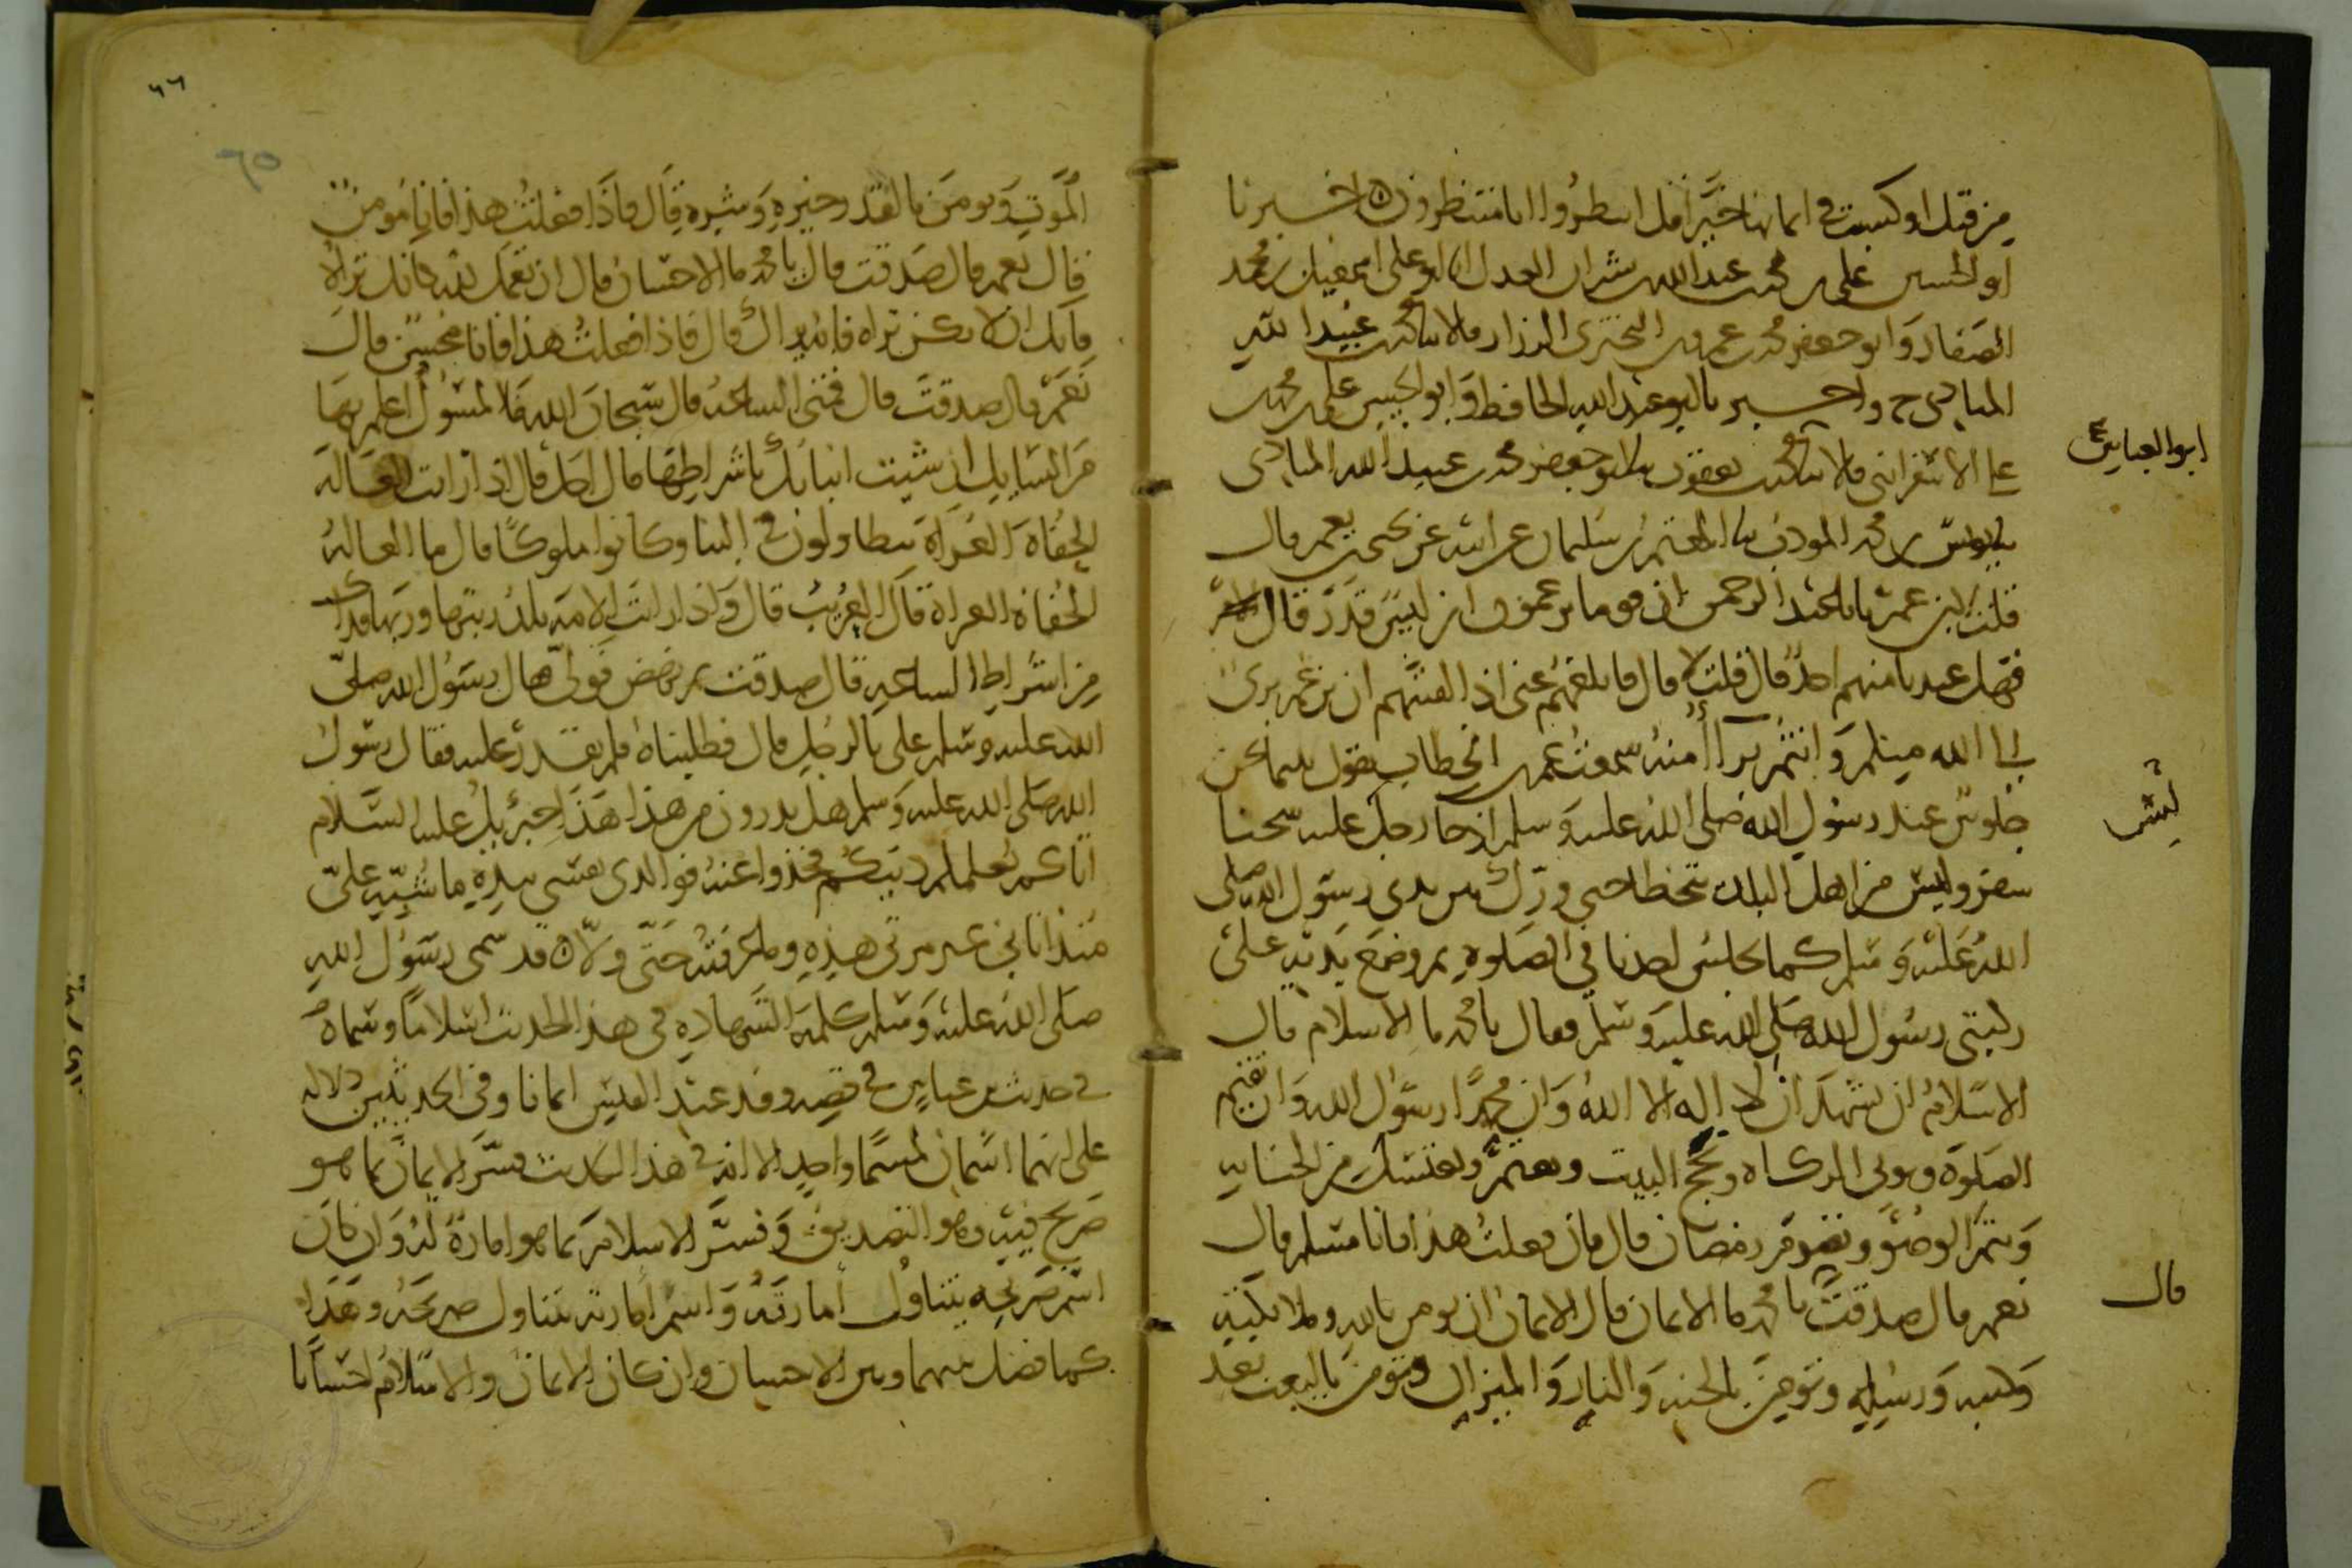 من قبل او كسبت في ايمانها خيرا قل انتظروا انا منتظرون اخبرنا
ابو الحسين علي بن محمد بن عبد الله بن بشران العدل انا ابو علي اسمعيل بن محمد
الصفار وابو جعفر محمد بن عمرو بن البختري الرزاز قالا ثنا محمد بن عبيد الله
المنادي ح واخبرنا ابو عبد الله الحافظ وابو الحسين علي بن محمد بن
علي الاسفرايني قالا ثنا محمد بن يعقوب ثنا ابو جعفر محمد بن عبيد الله المنادي
ابو العباس
ثنا يونس بن محمد المودب ثنا المعتمر بن سليمان عن ابيه عن يحيى بن يعمر قال
قلت لابن عمر يا با عبد الرحمن ان قوما يزعمون ان ليس قدر قال
فهل عندنا منهم احد قال قلت لا قال فابلغهم عني اذا لقيتهم ان بن عمر بريء
الى الله منكم وانتم برآء منه سمعت عمر بن الخطاب يقول بينما نحن
جلوس عند رسول الله صلى الله عليه وسلم اذ جا رجل عليه سحنا
سفر وليس من اهل البلد يتخطا حتى ورك بين يدي رسول الله صلى
الله عليه وسلم كما يجلس احدنا في الصلوة ثم وضع يديه على
ركبتي رسول الله صلى الله عليه وسلم فقال يا محمد ما الاسلام قال
الاسلام ان تشهد ان لا اله الا الله وان محمدا رسول الله وان تقيم
الصلوة وتوتي الزكاه وتحج البيت وتعتمر وتغتسل من الجنابه
وتتم الوضو وتصوم رمضان قال فان فعلت هذا فانا مسلم قال
نعم قال صدقت يا محمد ما الايمان قال الايمان ان تومن بالله وملائكته
قال
وكتبه ورسله وتومن بالجنه والنار والميزان وتومن بالبعث بعد
٦٦
٦٥
الموت وتومن بالقدر خيره وشره قال فاذا فعلت هذا فانا مومن
قال نعم قال صدقت قال يا محمد ما الاحسان قال ان تعمل لله كانك تراه
فانك ان لا تكن تراه فانه يراك قال فاذا فعلت هذا فانا محسن قال
نعم قال صدقت قال فمتى الساعه قال سبحان الله ما المسول اعلم بها
من السايل ان شيت انباتك باشراطها قال اجل قال اذا رايت العالة
الحفاة العراة يتطاولون في البنا وكانوا ملوكا قال ما العالة
الحفاة العراة قال العريب قال واذا رايت الامه تلد ربتها وربها فذاك
من اشراط الساعه قال صدقت ثم نهض فولى قال رسول الله صلى
الله عليه وسلم علي بالرجل قال فطلبناه فلم نقدر عليه فقال رسول
الله صلى الله عليه وسلم هل تدرون من هذا هذا جبرئيل عليه السلام
اتاكم يعلمكم دينكم فخذوا عنه فوالذي نفسي بيده ما شبه علي
منذ اتاني غير مرتي هذه وما عرفته حتى ولا ن قد سمى رسول الله
صلى الله عليه وسلم كلمة الشهاده في هذا الحديث اسلاما وسماه
في حديث بن عباس في قصه وفد عبد القيس ايمانا وفي الحديثين دلاله
على انهما اسمان لمسما واحد الا انه في هذا الحديث فسر الايمان بما هو
صريح فيه وهو التصديق وفسر الاسلام بما هو امارة له وان كان
اسم صريحه يتناول امارته واسم امارته يتناول صريحه وهذا
كما فصل بينهما وبين الاحسان وان كان الايمان والاسلام احسانا